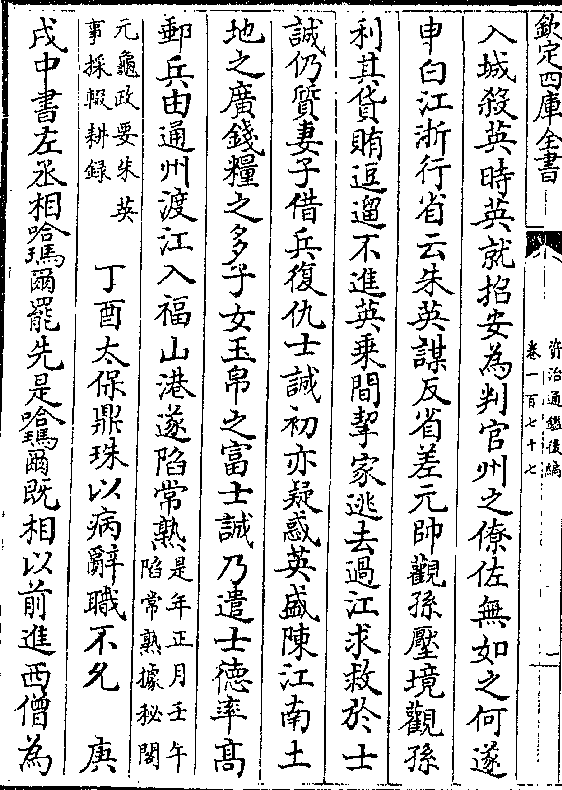 欽定四庫全書
資治通鑑後編
卷一百七十七
一
入城殺英時英就招安為判官州之僚佐無如之何遂
申白江浙行省云朱英謀反省差元帥觀孫壓境觀孫
利其貨賄逗遛不進英乗間挈家逃去過江求救於士
誠仍質妻子借兵復仇士誠初亦疑惑英盛陳江南土
地之廣錢糧之多子女玉帛之富士誠乃遣士德率髙
郵兵由通州渡江入福山港遂陷常熟是年正月壬午
陷常熟據秘閣
元龜政要朱英
事採輟耕録
丁酉太保鼎珠以病辭職不允 庚
戌中書左丞相哈瑪爾罷先是哈瑪爾既相以前進西僧為